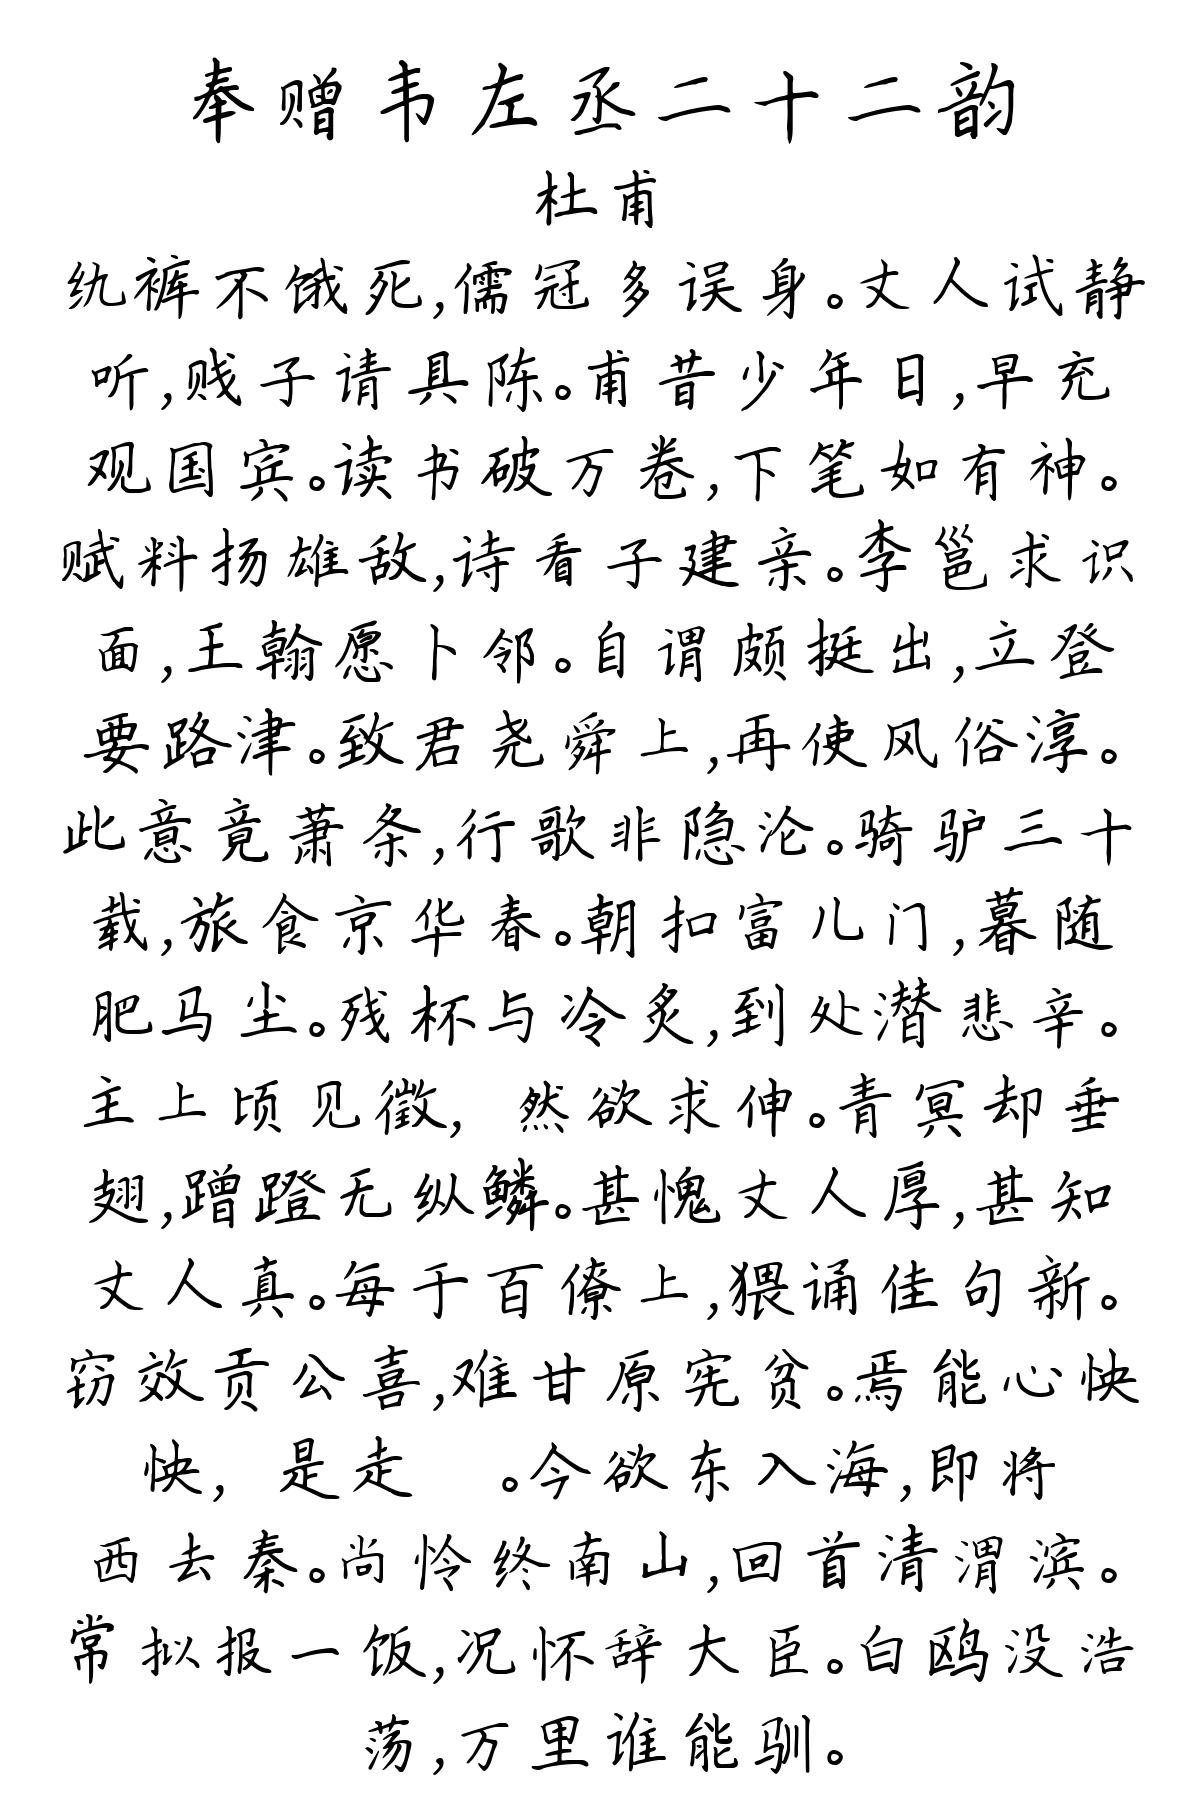 奉赠韦左丞二十二韵
杜甫
纨裤不饿死,儒冠多误身。丈人试静
听,贱子请具陈。甫昔少年日,早充
观国宾。读书破万卷,下笔如有神。
赋料扬雄敌,诗看子建亲。李邕求识
面,王翰愿卜邻。自谓颇挺出,立登
要路津。致君尧舜上,再使风俗淳。
此意竟萧条,行歌非隐沦。骑驴三十
载,旅食京华春。朝扣富儿门,暮随
肥马尘。残杯与冷炙,到处潜悲辛。
主上顷见徵, 然欲求伸。青冥却垂
翅,蹭蹬无纵鳞。甚愧丈人厚,甚知
丈人真。每于百僚上,猥诵佳句新。
窃效贡公喜,难甘原宪贫。焉能心怏
怏, 是走 。今欲东入海,即将
西去秦。尚怜终南山,回首清渭滨。
常拟报一饭,况怀辞大臣。白鸥没浩
荡,万里谁能驯。